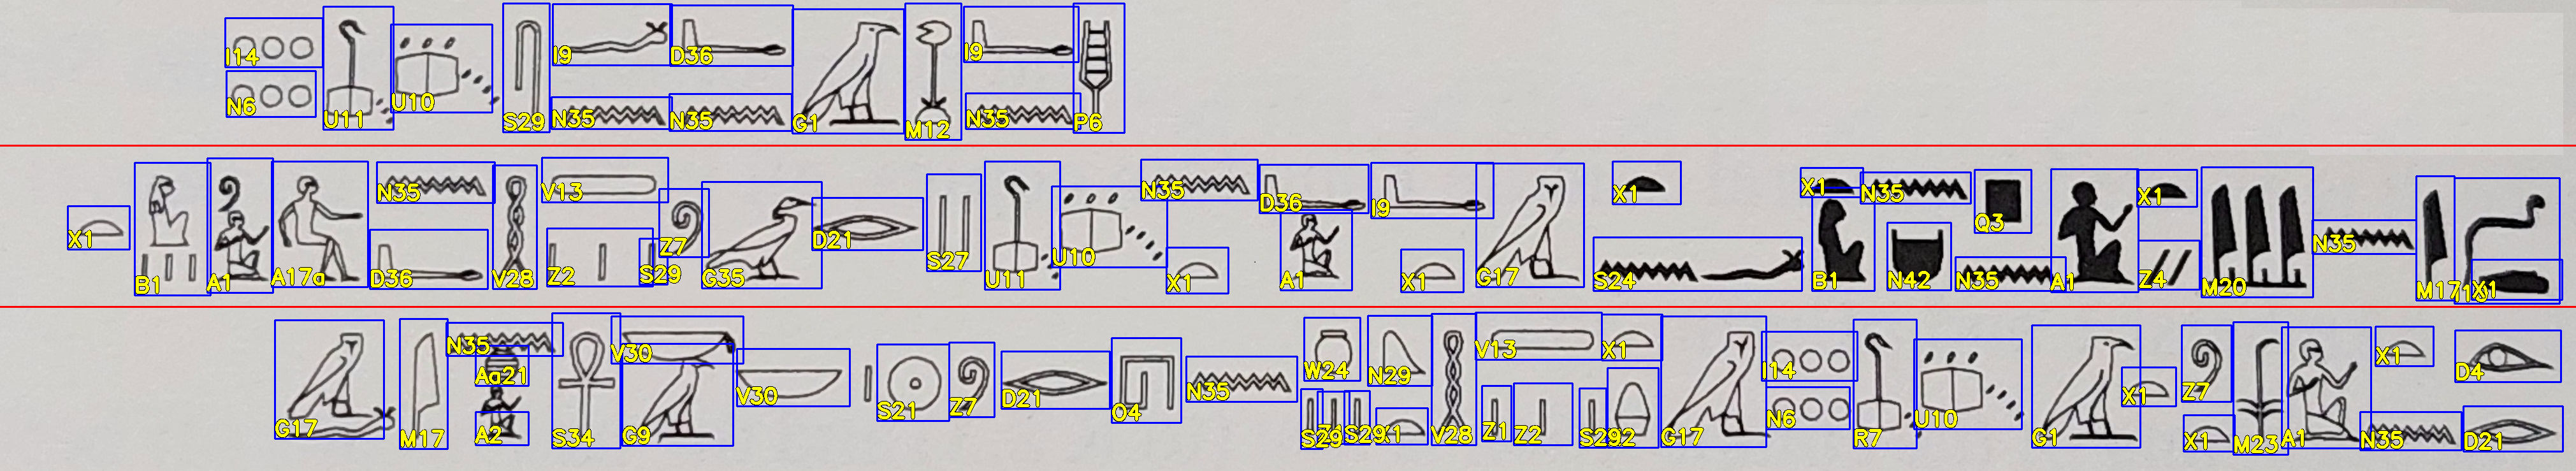 I14 N6 U11 U10 S29 I9 N35 D36 N35 G1 M12 I9 N35 P6
X1 B1 A1 A17a N35 D36 V28 V13 Z2 S29 Z7 G35 D21 S27 U11 U10 N35 X1 D36 A1 I9 X1 G17 X1 S24 X1 B1 N35 N42 Q3 N35 A1 X1 Z4 M20 N35 M17 X1
G17 M17 N35 Aa21 A2 S34 V30 G9 V30 S21 Z7 D21 O4 N35 W24 S29 N29 S29 V28 V13 Z1 Z2 X1 S29 G17 I14 N6 R7 U10 G1 X1 Z7 X1 M23 A1 X1 N35 D4 D21